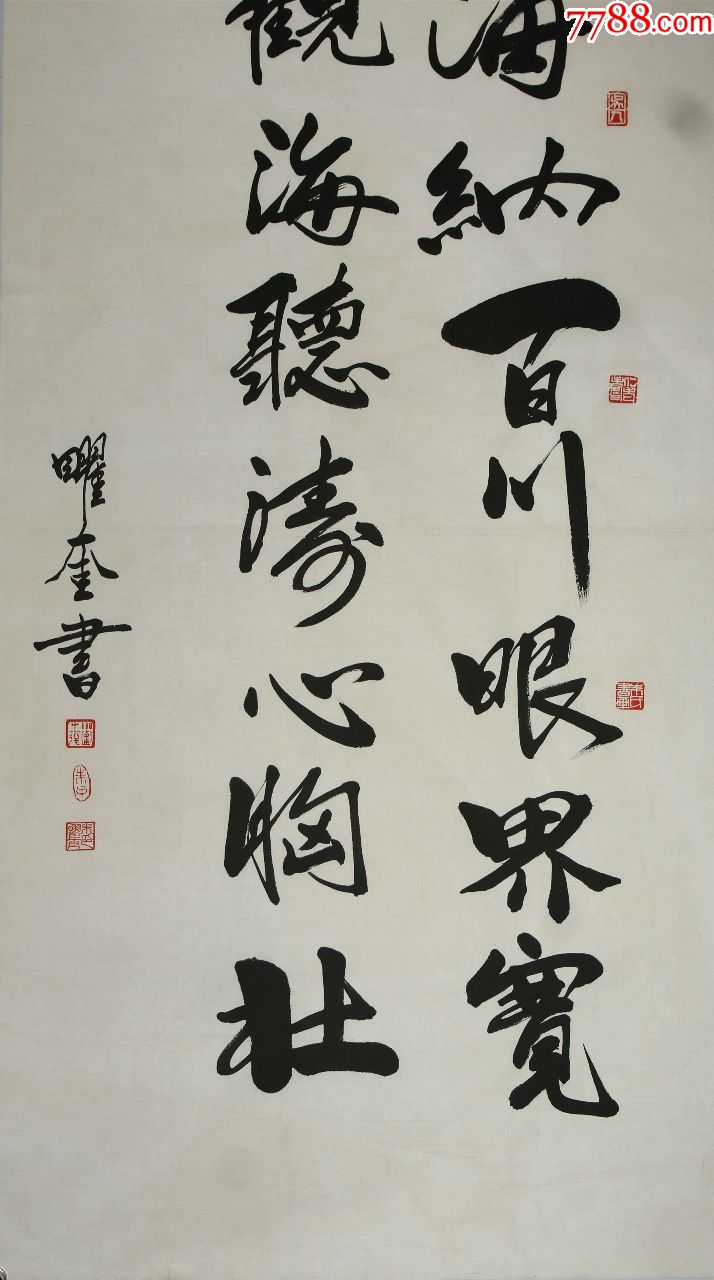 7788.com
海納百川眼界寬
觀海聽濤心胸壯
曜奎書